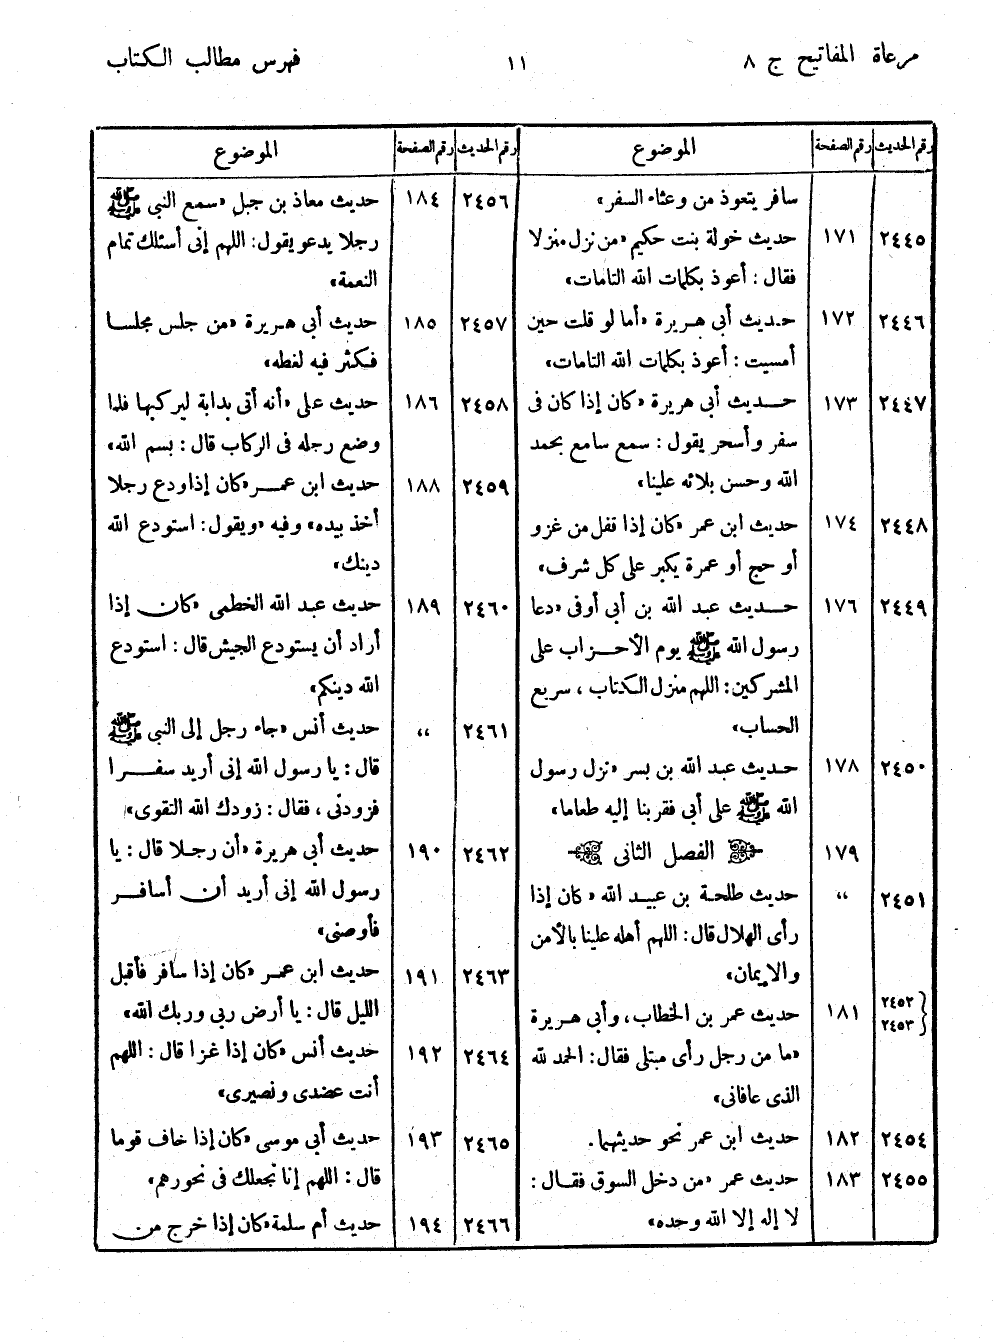 مرعاة المفاتيح ج ٨ ١١ فهرس مطالب الكتاب
رقم الحديث رقم الصفحة الموضوع
سافر يتعوذ من وعثاء السفر»
٢٤٤٥ ١٧١ حديث خولة بنت حكيم «من نزل منزلا
فقال : أعوذ بكلمات الله التامات»
٢٤٤٦ ١٧٢ حديث أبي هريرة «أما لو قلت حين
أمسيت : أعوذ بكلمات الله التامات»
٢٤٤٧ ١٧٣ حديث أبي هريرة «كان إذا كان فى
سفر وأسحر يقول : سمع سامع بحمد
الله وحسن بلائه علينا»
٢٤٤٨ ١٧٤ حديث ابن عمر «كان إذا قفل من غزو
أو حج أو عمرة يكبر على كل شرف»
٢٤٤٩ ١٧٦ حديث عبد الله بن أبي أوفى «دعا
رسول الله ﷺ يوم الأحزاب على
المشركين: اللهم منزل الكتاب ، سريع
الحساب»
٢٤٥٠ ١٧٨ حديث عبد الله بن بسر «نزل رسول
الله ﷺ على أبي فقربنا إليه طعاما»
١٧٩ الفصل الثانى
٢٤٥١ ،، حديث طلحة بن عبيد الله «كان إذا
رأى الهلال قال : اللهم أهله علينا بالأمن
والإيمان»
٢٤٥٢
٢٤٥٣ ١٨١ حديث عمر بن الخطاب ، وأبي هريرة
«ما من رجل رأى مبتلى فقال : الحمد لله
الذى عافانى»
٢٤٥٤ ١٨٢ حديث ابن عمر نحو حديثهما.
٢٤٥٥ ١٨٣ حديث عمر «من دخل السوق فقال :
لا إله إلا الله وحده»
رقم الحديث رقم الصفحة الموضوع
٢٤٥٦ ١٨٤ حديث معاذ بن جبل «سمع النبي ﷺ
رجلا يدعو يقول : اللهم إنى أسئلك تمام
النعمة»
٢٤٥٧ ١٨٥ حديث أبي هريرة «من جلس مجلسا
فكثر فيه لغطه»
٢٤٥٨ ١٨٦ حديث على «أنه أتى بدابة ليركبها فلما
وضع رجله فى الركاب قال : بسم الله»
٢٤٥٩ ١٨٨ حديث ابن عمر «كان إذا ودع رجلا
أخذ بيده» وفيه «ويقول : استودع الله
دينك»
٢٤٦٠ ١٨٩ حديث عبد الله الخطمى «كان إذا
أراد أن يستودع الجيش قال : استودع
الله دينكم»
٢٤٦١ ،، حديث أنس «جاء رجل إلى النبي ﷺ
قال : يا رسول الله إنى أريد سفرا
فزودنى ، فقال : زودك الله التقوى»
٢٤٦٢ ١٩٠ حديث أبي هريرة «أن رجلا قال : يا
رسول الله إنى أريد أن أسافر
فأوصنى»
٢٤٦٣ ١٩١ حديث ابن عمر «كان إذا سافر فأقبل
الليل قال : يا أرض ربي وربك الله»
٢٤٦٤ ١٩٢ حديث أنس «كان إذا غزا قال : اللهم
أنت عضدى ونصيرى»
٢٤٦٥ ١٩٣ حديث أبي موسى «كان إذا خاف قوما
قال : اللهم إنا نجعلك فى نحورهم»
٢٤٦٦ ١٩٤ حديث أم سلمة «كان إذا خرج من